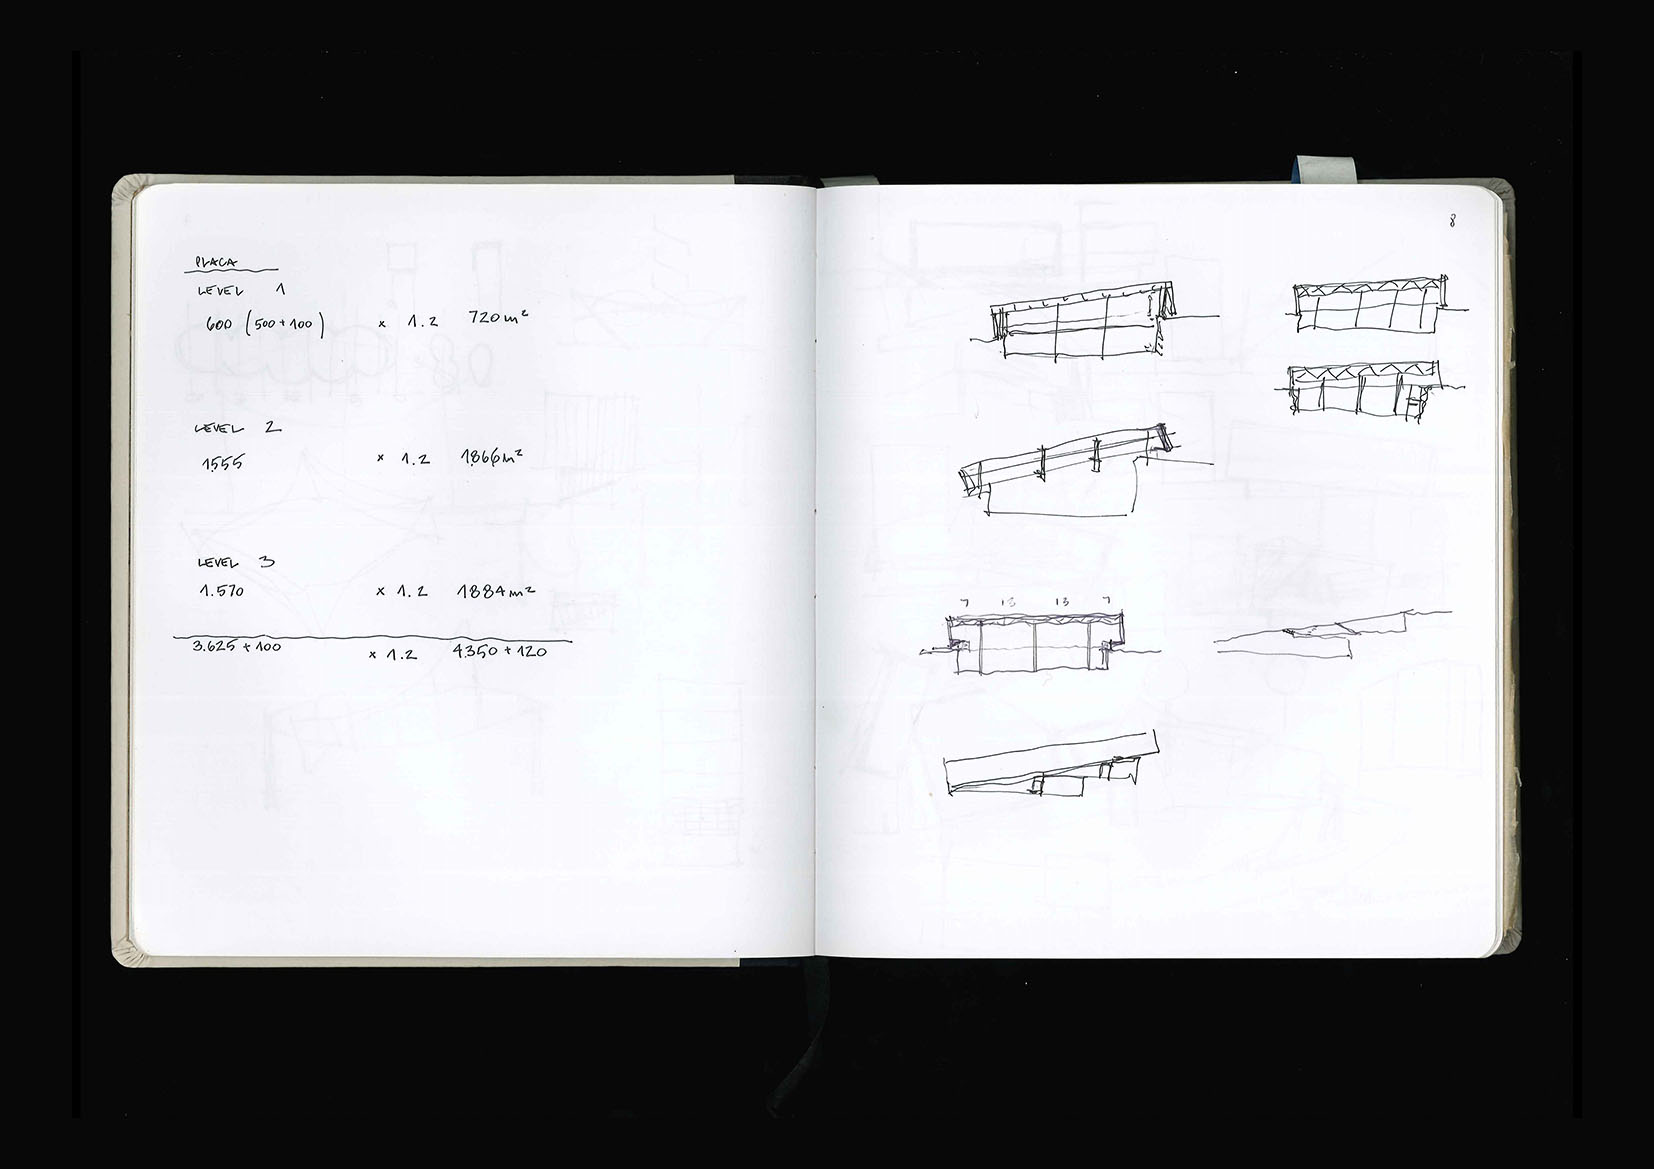 PLACA
LEVEL 1
600 (500+100) x 1.2 720 m²
LEVEL 2
1555 x 1.2 1866 m²
LEVEL 3
1.570 x 1.2 1884 m²
3.625 + 100 x 1.2 4350 + 120
8
7 13 13 7